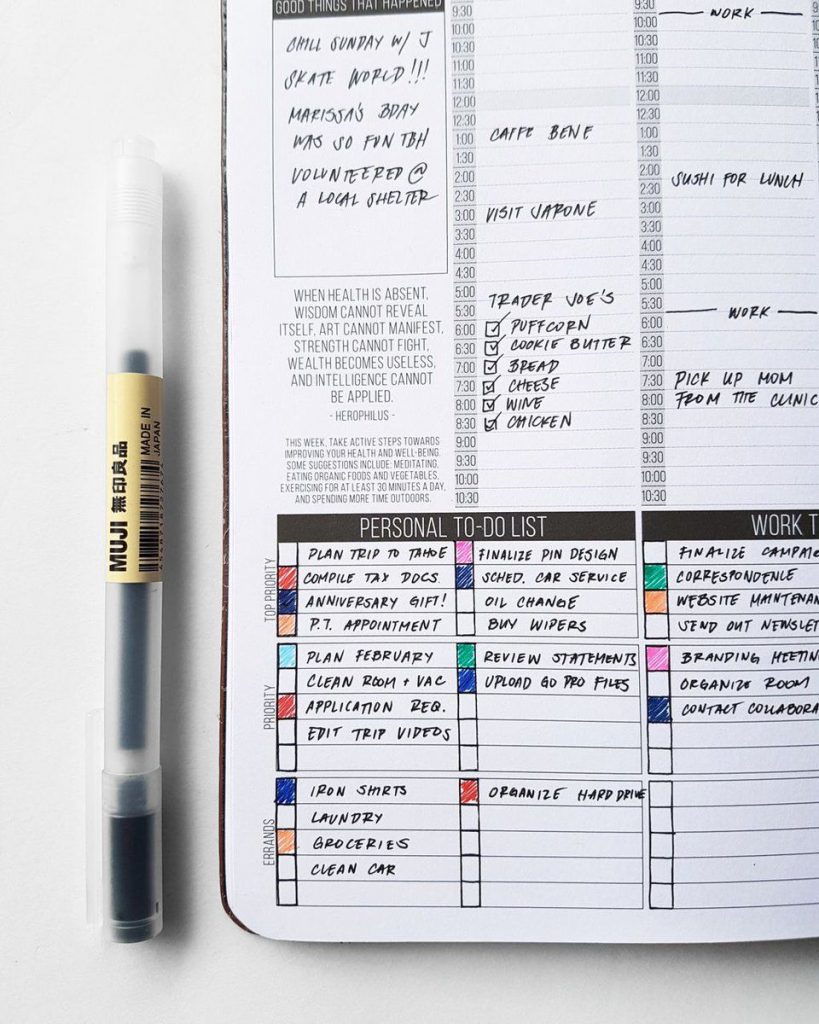 GOOD THINGS THAT HAPPENED
CHILL SUNDAY W/ J
SKATE WORLD!!!
MARISSA'S BDAY
WAS SO FUN TBH
VOLUNTEERED @
A LOCAL SHELTER
WHEN HEALTH IS ABSENT,
WISDOM CANNOT REVEAL
ITSELF, ART CANNOT MANIFEST,
STRENGTH CANNOT FIGHT,
WEALTH BECOMES USELESS,
AND INTELLIGENCE CANNOT
BE APPLIED.
- HEROPHILUS -
THIS WEEK, TAKE ACTIVE STEPS TOWARDS
IMPROVING YOUR HEALTH AND WELL-BEING.
SOME SUGGESTIONS INCLUDE: MEDITATING,
EATING ORGANIC FOODS AND VEGETABLES,
EXERCISING FOR AT LEAST 30 MINUTES A DAY,
AND SPENDING MORE TIME OUTDOORS.
9:30
10:00
10:30
11:00
11:30
12:00
12:30
1:00 CAFFE BENE
1:30
2:00
2:30
3:00 VISIT JARONE
3:30
4:00
4:30
5:00 TRADER JOE'S
5:30
6:00 PUFFCORN
6:30 COOKIE BUTTER
7:00 BREAD
7:30 CHEESE
8:00 WINE
8:30 CHICKEN
9:00
9:30
10:00
10:30
9:30 WORK
10:00
10:30
11:00
11:30
12:00
12:30
1:00
1:30
2:00
2:30 SUSHI FOR LUNCH
3:00
3:30
4:00
4:30
5:00
5:30 WORK
6:00
6:30
7:00
7:30 PICK UP MOM
8:00 FROM THE CLINIC
8:30
9:00
9:30
10:00
10:30
PERSONAL TO-DO LIST
TOP PRIORITY
PLAN TRIP TO TAHOE
COMPILE TAX DOCS
ANNIVERSARY GIFT!
P.T. APPOINTMENT
FINALIZE PIN DESIGN
SCHED. CAR SERVICE
OIL CHANGE
BUY WIPERS
PRIORITY
PLAN FEBRUARY
CLEAN ROOM + VAC
APPLICATION REQ.
EDIT TRIP VIDEOS
REVIEW STATEMENTS
UPLOAD GO PRO FILES
ERRANDS
IRON SHIRTS
LAUNDRY
GROCERIES
CLEAN CAR
ORGANIZE HARD DRIVE
WORK T
FINALIZE CAMPAIG
CORRESPONDENCE
WEBSITE MAINTENAN
SEND OUT NEWSLET
BRANDING MEETING
ORGANIZE ROOM
CONTACT COLLABORA
MUJI 無印良品
MADE IN
JAPAN